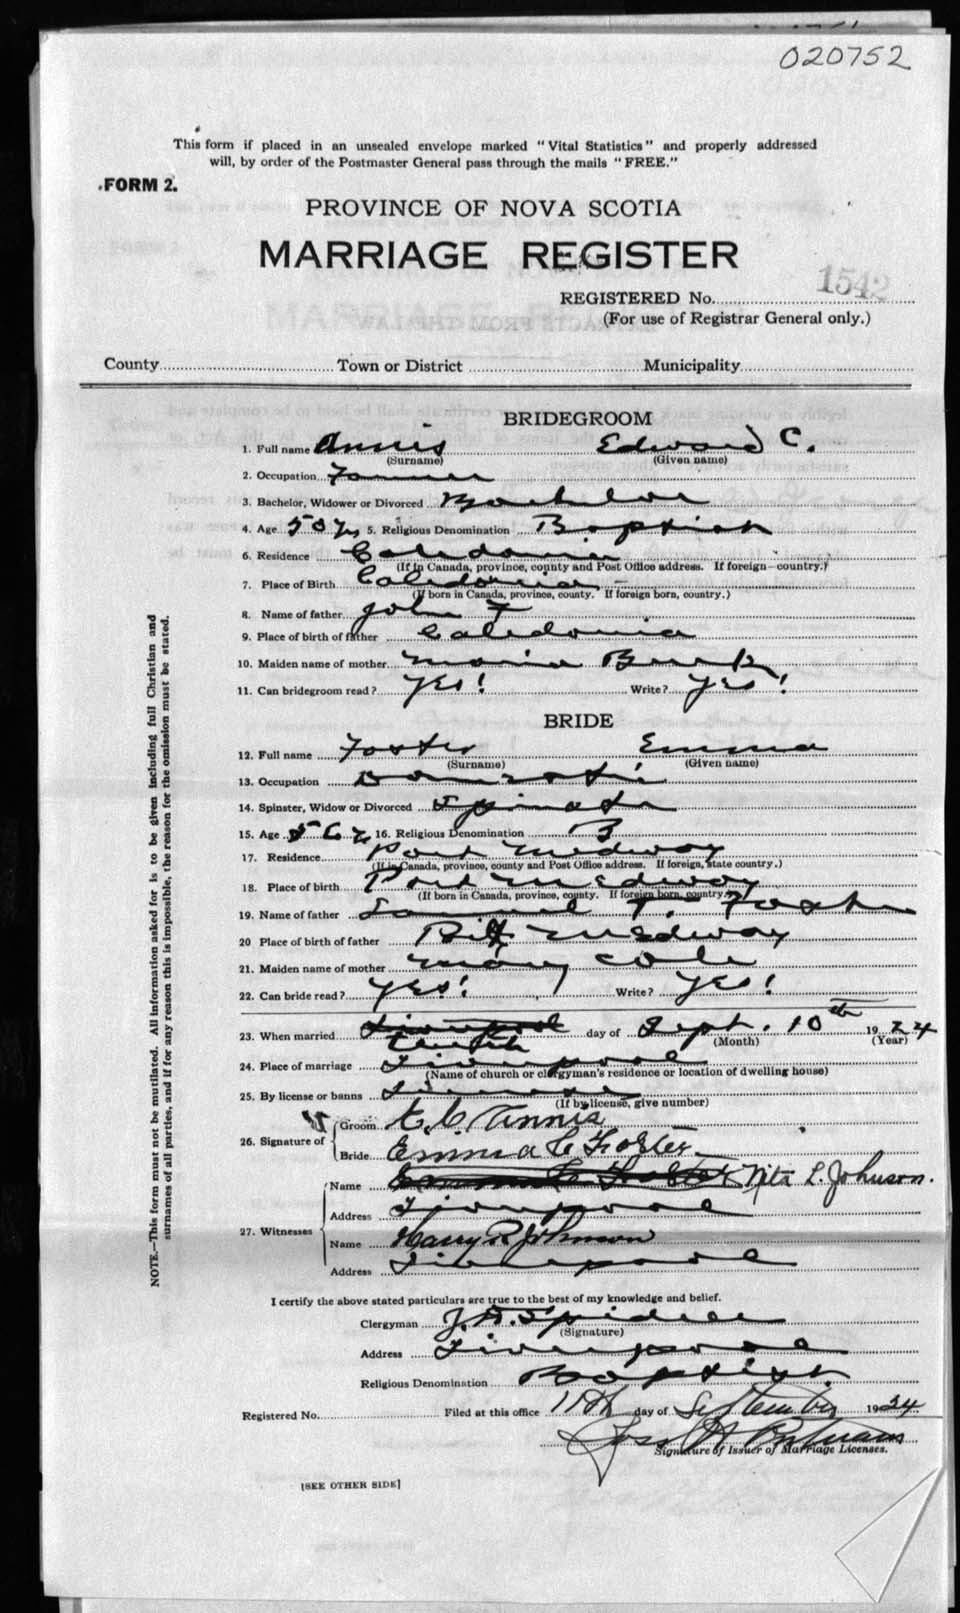 020752
This form if placed in an unsealed envelope marked "Vital Statistics" and properly addressed
will, by order of the Postmaster General pass through the mails "FREE."
FORM 2.
PROVINCE OF NOVA SCOTIA
MARRIAGE REGISTER
1542
REGISTERED No.
(For use of Registrar General only.)
County Town or District Municipality
BRIDEGROOM
1. Full name Annis Edward C.
(Surname) (Given name)
2. Occupation Farmer
3. Bachelor, Widower or Divorced Bachelor
4. Age 50 yrs 5. Religious Denomination Baptist
6. Residence Caledonia
(If in Canada, province, county and Post Office address. If foreign—country.)
7. Place of Birth Caledonia
(If born in Canada, province, county. If foreign born, country.)
8. Name of father John F
9. Place of birth of father Caledonia
10. Maiden name of mother Maria Burk
11. Can bridegroom read? Yes! Write? Yes!
BRIDE
12. Full name Foster Emma
(Surname) (Given name)
13. Occupation Domestic
14. Spinster, Widow or Divorced Spinster
15. Age 56 y 16. Religious Denomination B
17. Residence Port Medway
(If in Canada, province, county and Post Office address. If foreign, state country.)
18. Place of birth Port Medway
(If born in Canada, province, county. If foreign born, country.)
19. Name of father Samuel T. Foster
20 Place of birth of father Port Medway
21. Maiden name of mother Mary Cole
22. Can bride read? Yes! Write? Yes!
23. When married Liverpool Tenth day of Sept. 10th 1924
(Month) (Year)
24. Place of marriage Liverpool
(Name of church or clergyman's residence or location of dwelling house)
25. By license or banns License
(If by license, give number)
26. Signature of Groom E. C. Annis
Bride Emma C Foster
27. Witnesses Name Emma C Foster Nita L. Johnson.
Address Liverpool
Name Harry R Johnson
Address Liverpool
I certify the above stated particulars are true to the best of my knowledge and belief.
Clergyman J. A. Spidell
(Signature)
Address Liverpool
Religious Denomination Baptist.
Registered No. Filed at this office 11th day of September 1924
Signature of Issuer of Marriage Licenses.
[SEE OTHER SIDE]
NOTE.—This form must not be mutilated. All information asked for is to be given including full Christian and
surnames of all parties, and if for any reason this is impossible, the reason for the omission must be stated.